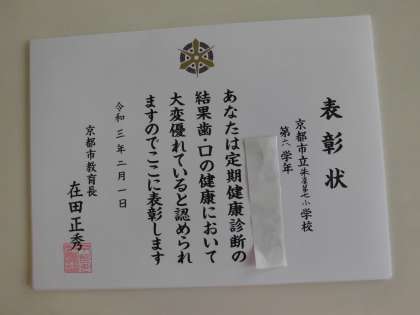 表彰状
京都市立朱雀第七小学校
第六学年
あなたは定期健康診断の
結果歯・口の健康において
大変優れていると認められ
ますのでここに表彰します
令和三年二月一日
京都市教育長
在田正秀